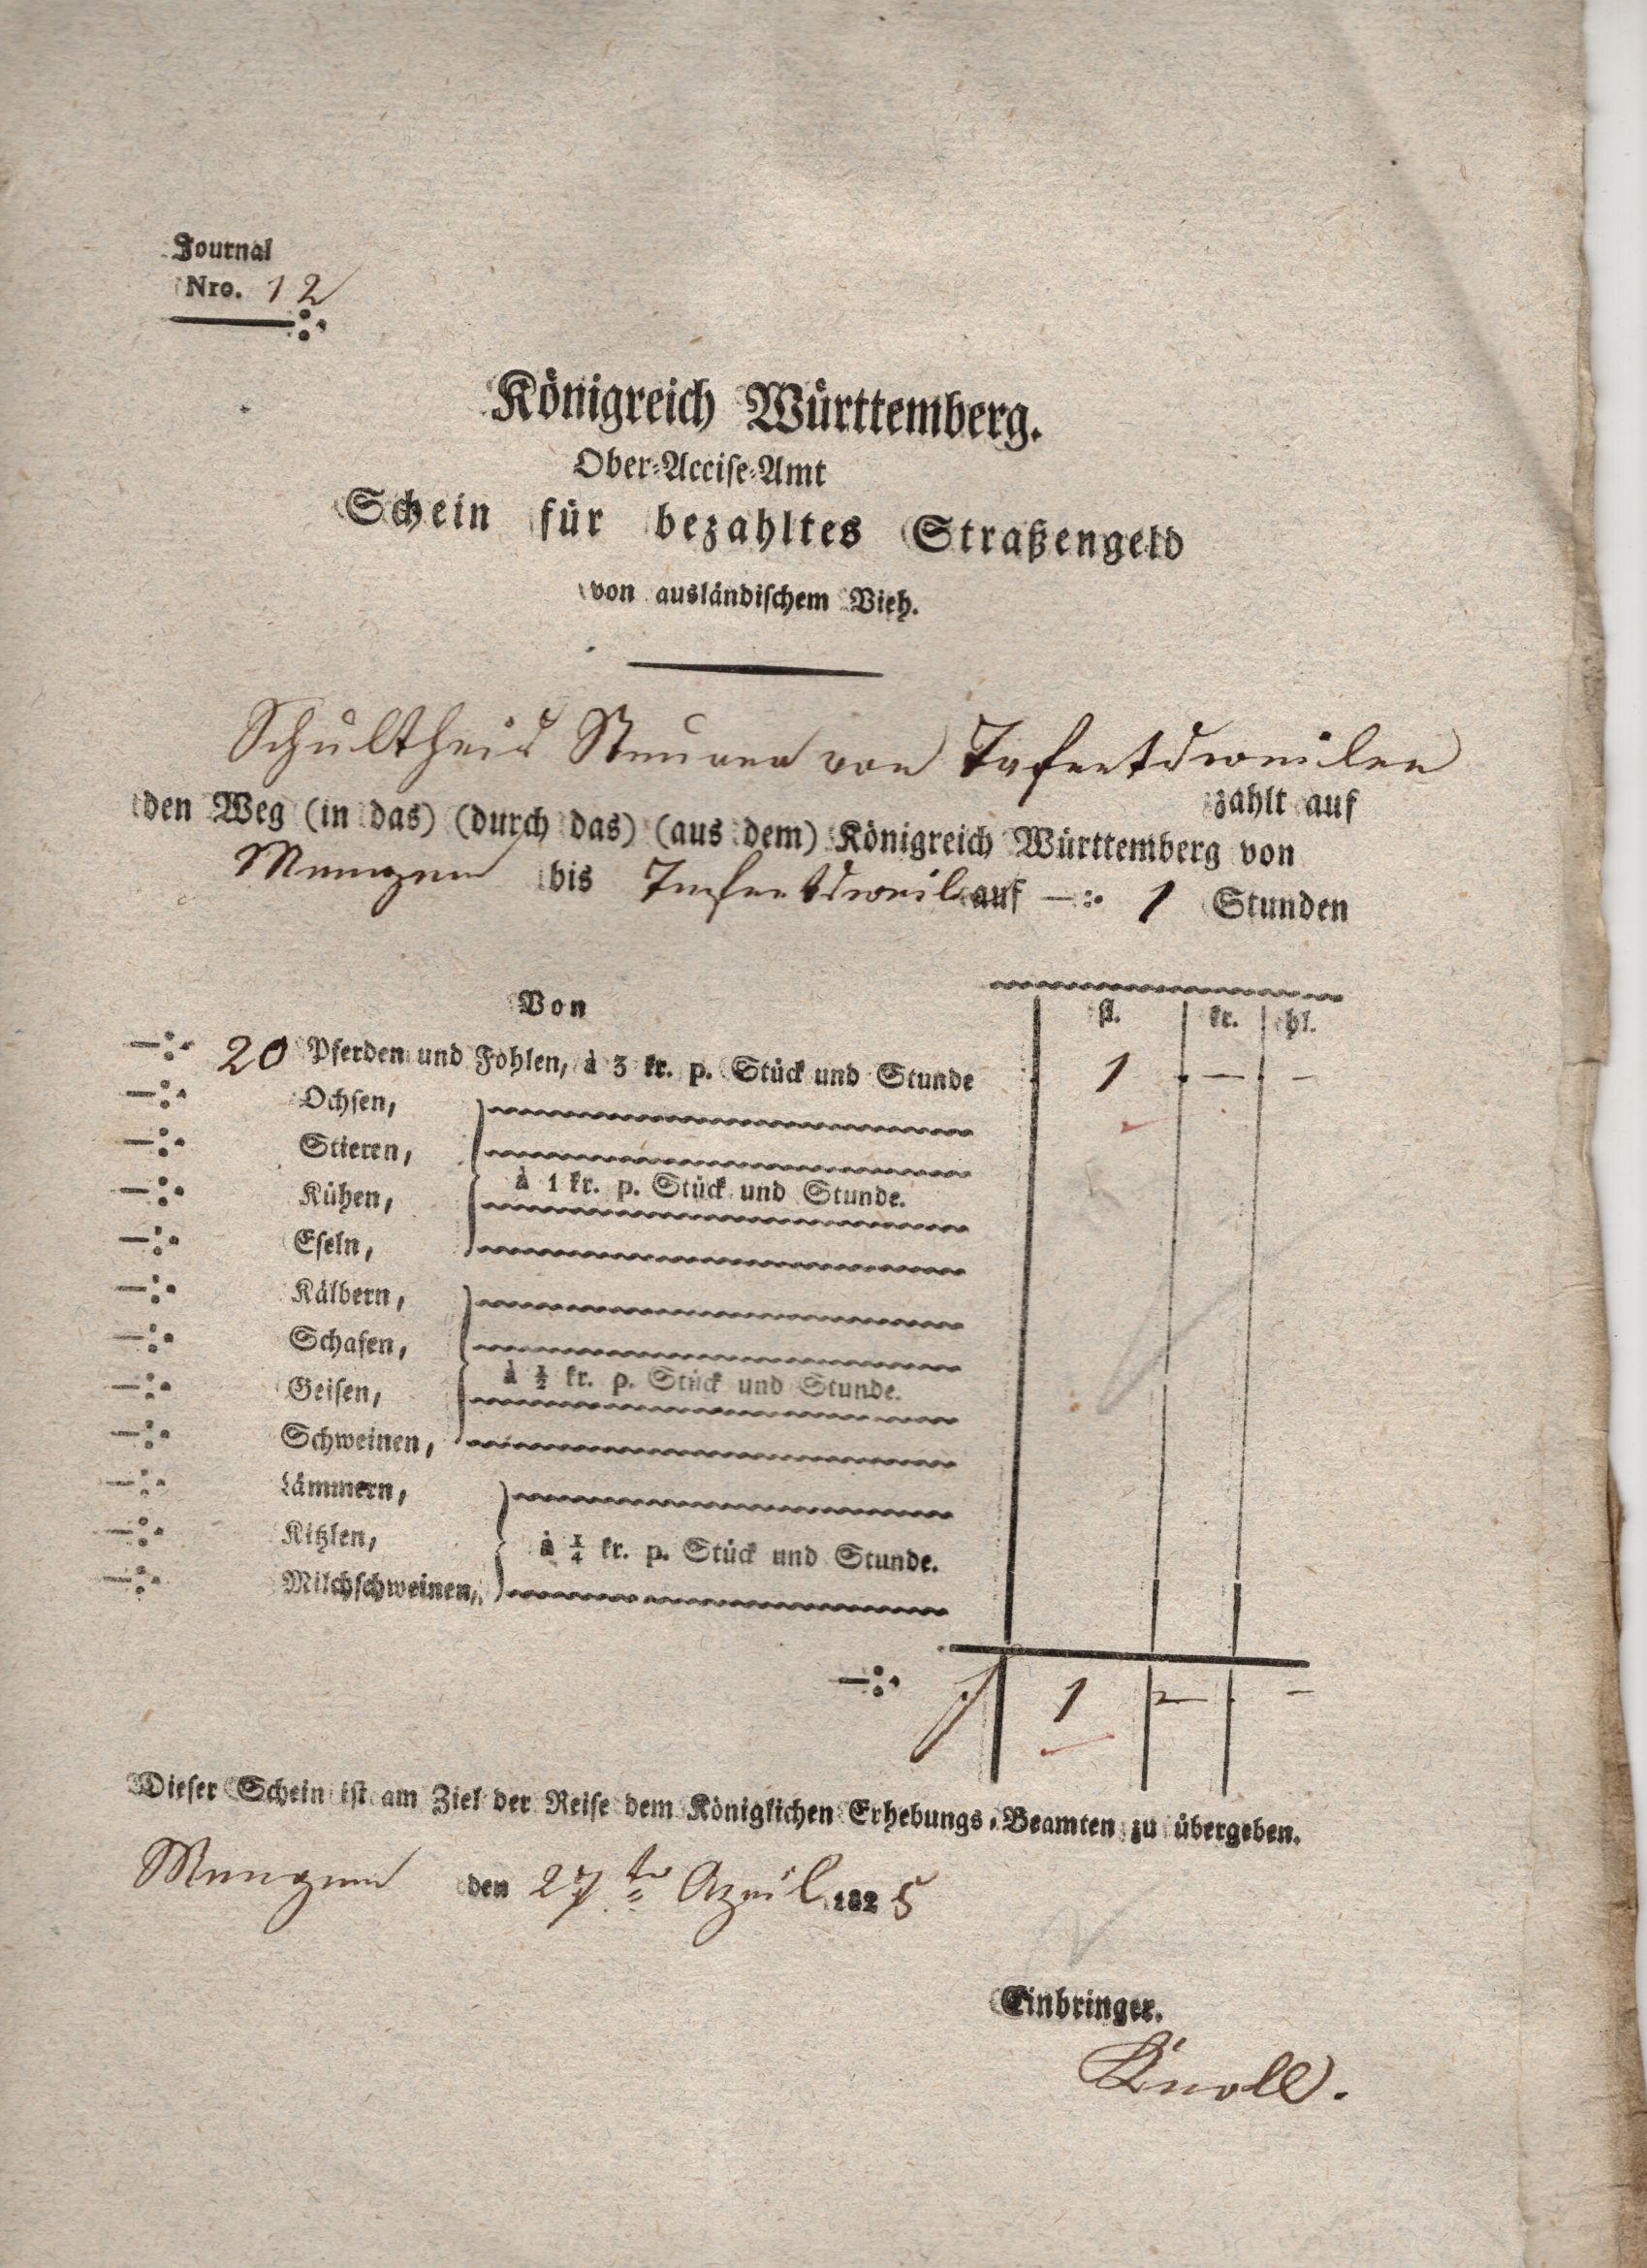 Journal
Nro. 12
Königreich Württemberg.
Ober-Accise-Amt
Schein für bezahltes Straßengeld
von ausländischem Vieh.
Schultheis von Tafertsweiler
zahlt auf
den Weg (in das) (durch das) (aus dem) Königreich Württemberg von
Mengen bis Tafertsweil auf 1 Stunden
Von
fl. kr. hl.
20 Pferden und Fohlen, à 3 kr. p. Stück und Stunde 1 — —
Ochsen,
Stieren,
à 1 kr. p. Stück und Stunde.
Kühen,
Eseln,
Kälbern,
Schafen,
à ½ kr. p. Stück und Stunde.
Geisen,
Schweinen,
Lämmern,
Kitzlen,
à ¼ kr. p. Stück und Stunde.
Milchschweinen,
1 — —
Dieser Schein ist am Ziel der Reise dem Königlichen Erhebungs-Beamten zu übergeben.
Mengen den 27ten April 1825
Einbringer.
Knoll.